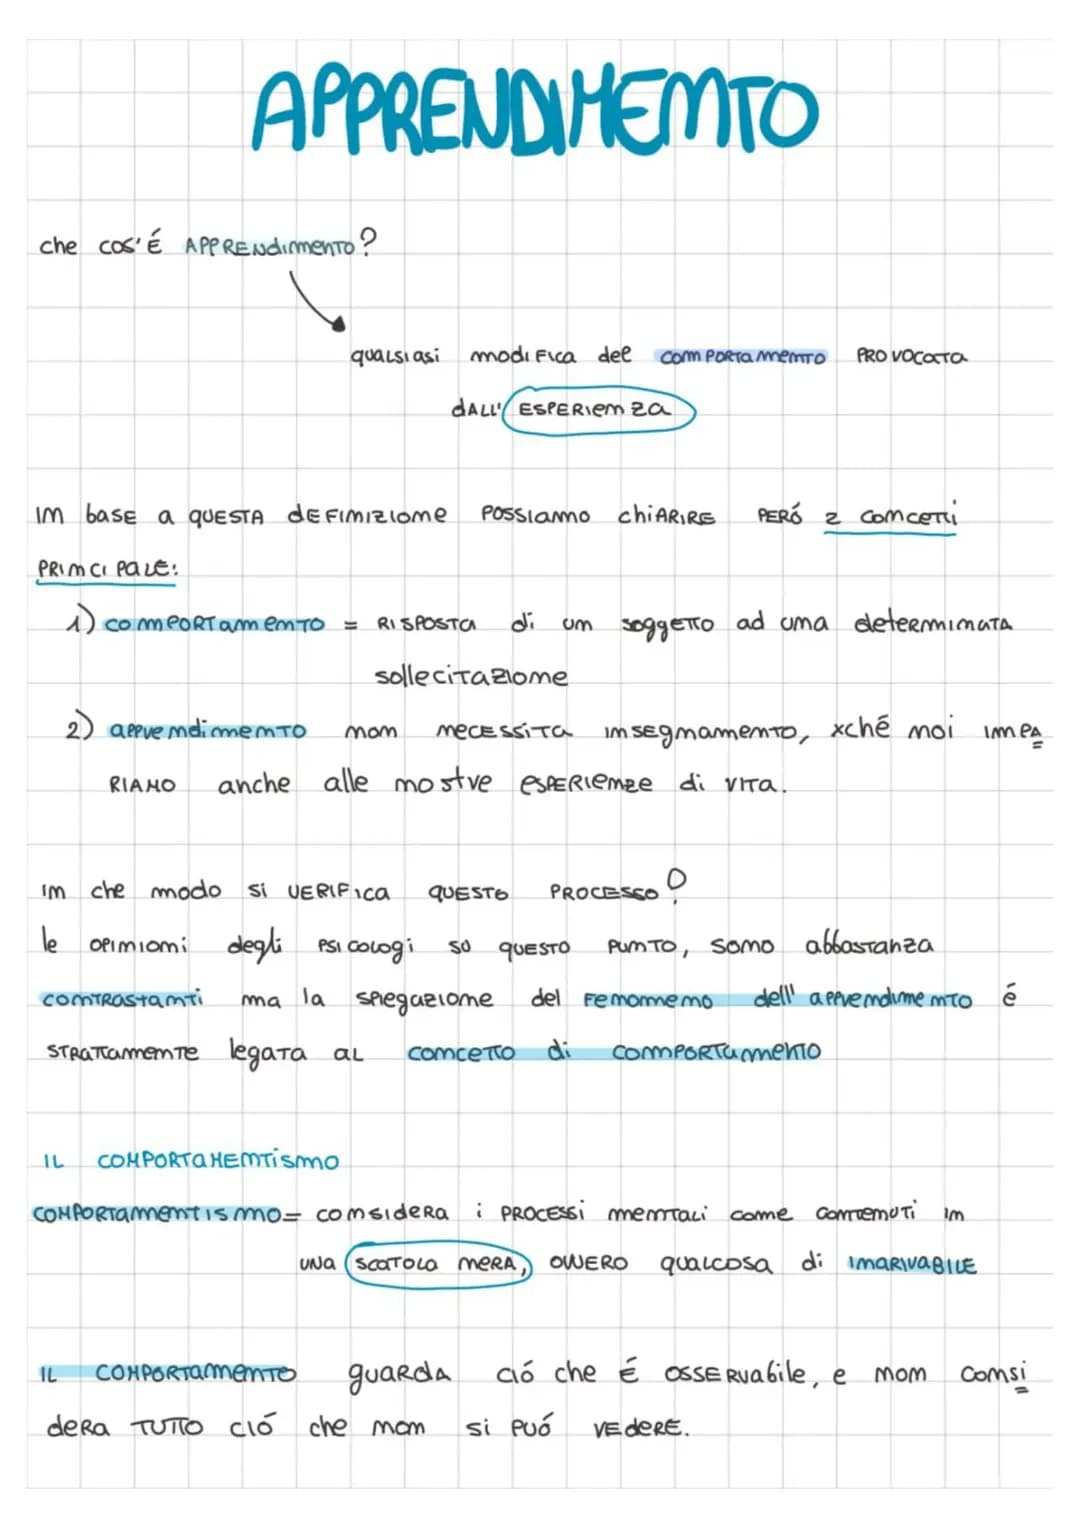 APPRENDIMENTO
che cos'É APPRENdimento?
qualsiasi modifica del comportamento PROVOCATA
dall' ESPERIENZA
IN base a questa definizione possiamo chiarire peró 2 concetti
PRINCIPALE:
1) comportamento = RISPOSTA di un soggetto ad una determinata
sollecitazione
2) apprendimento non necessita insegnamento, xché noi impa
RIAMO anche alle nostre esperienze di vita.
IN che modo si verifica questo processo?
le opinioni degli psicologi su questo punto, sono abbastanza
contrastanti ma la spiegazione del fenomeno dell' apprendimento é
strattamente legata al concetto di comportamento
IL COMPORTAMENTISMO
COMPORTAMENTISMO = considera i processi mentali come contenuti in
una scatola nera, ovvero qualcosa di inarivabile
IL COMPORTAMENTO guarda ció che É osservabile, e non consi
dera TUTTO ció che non si puó vedere.